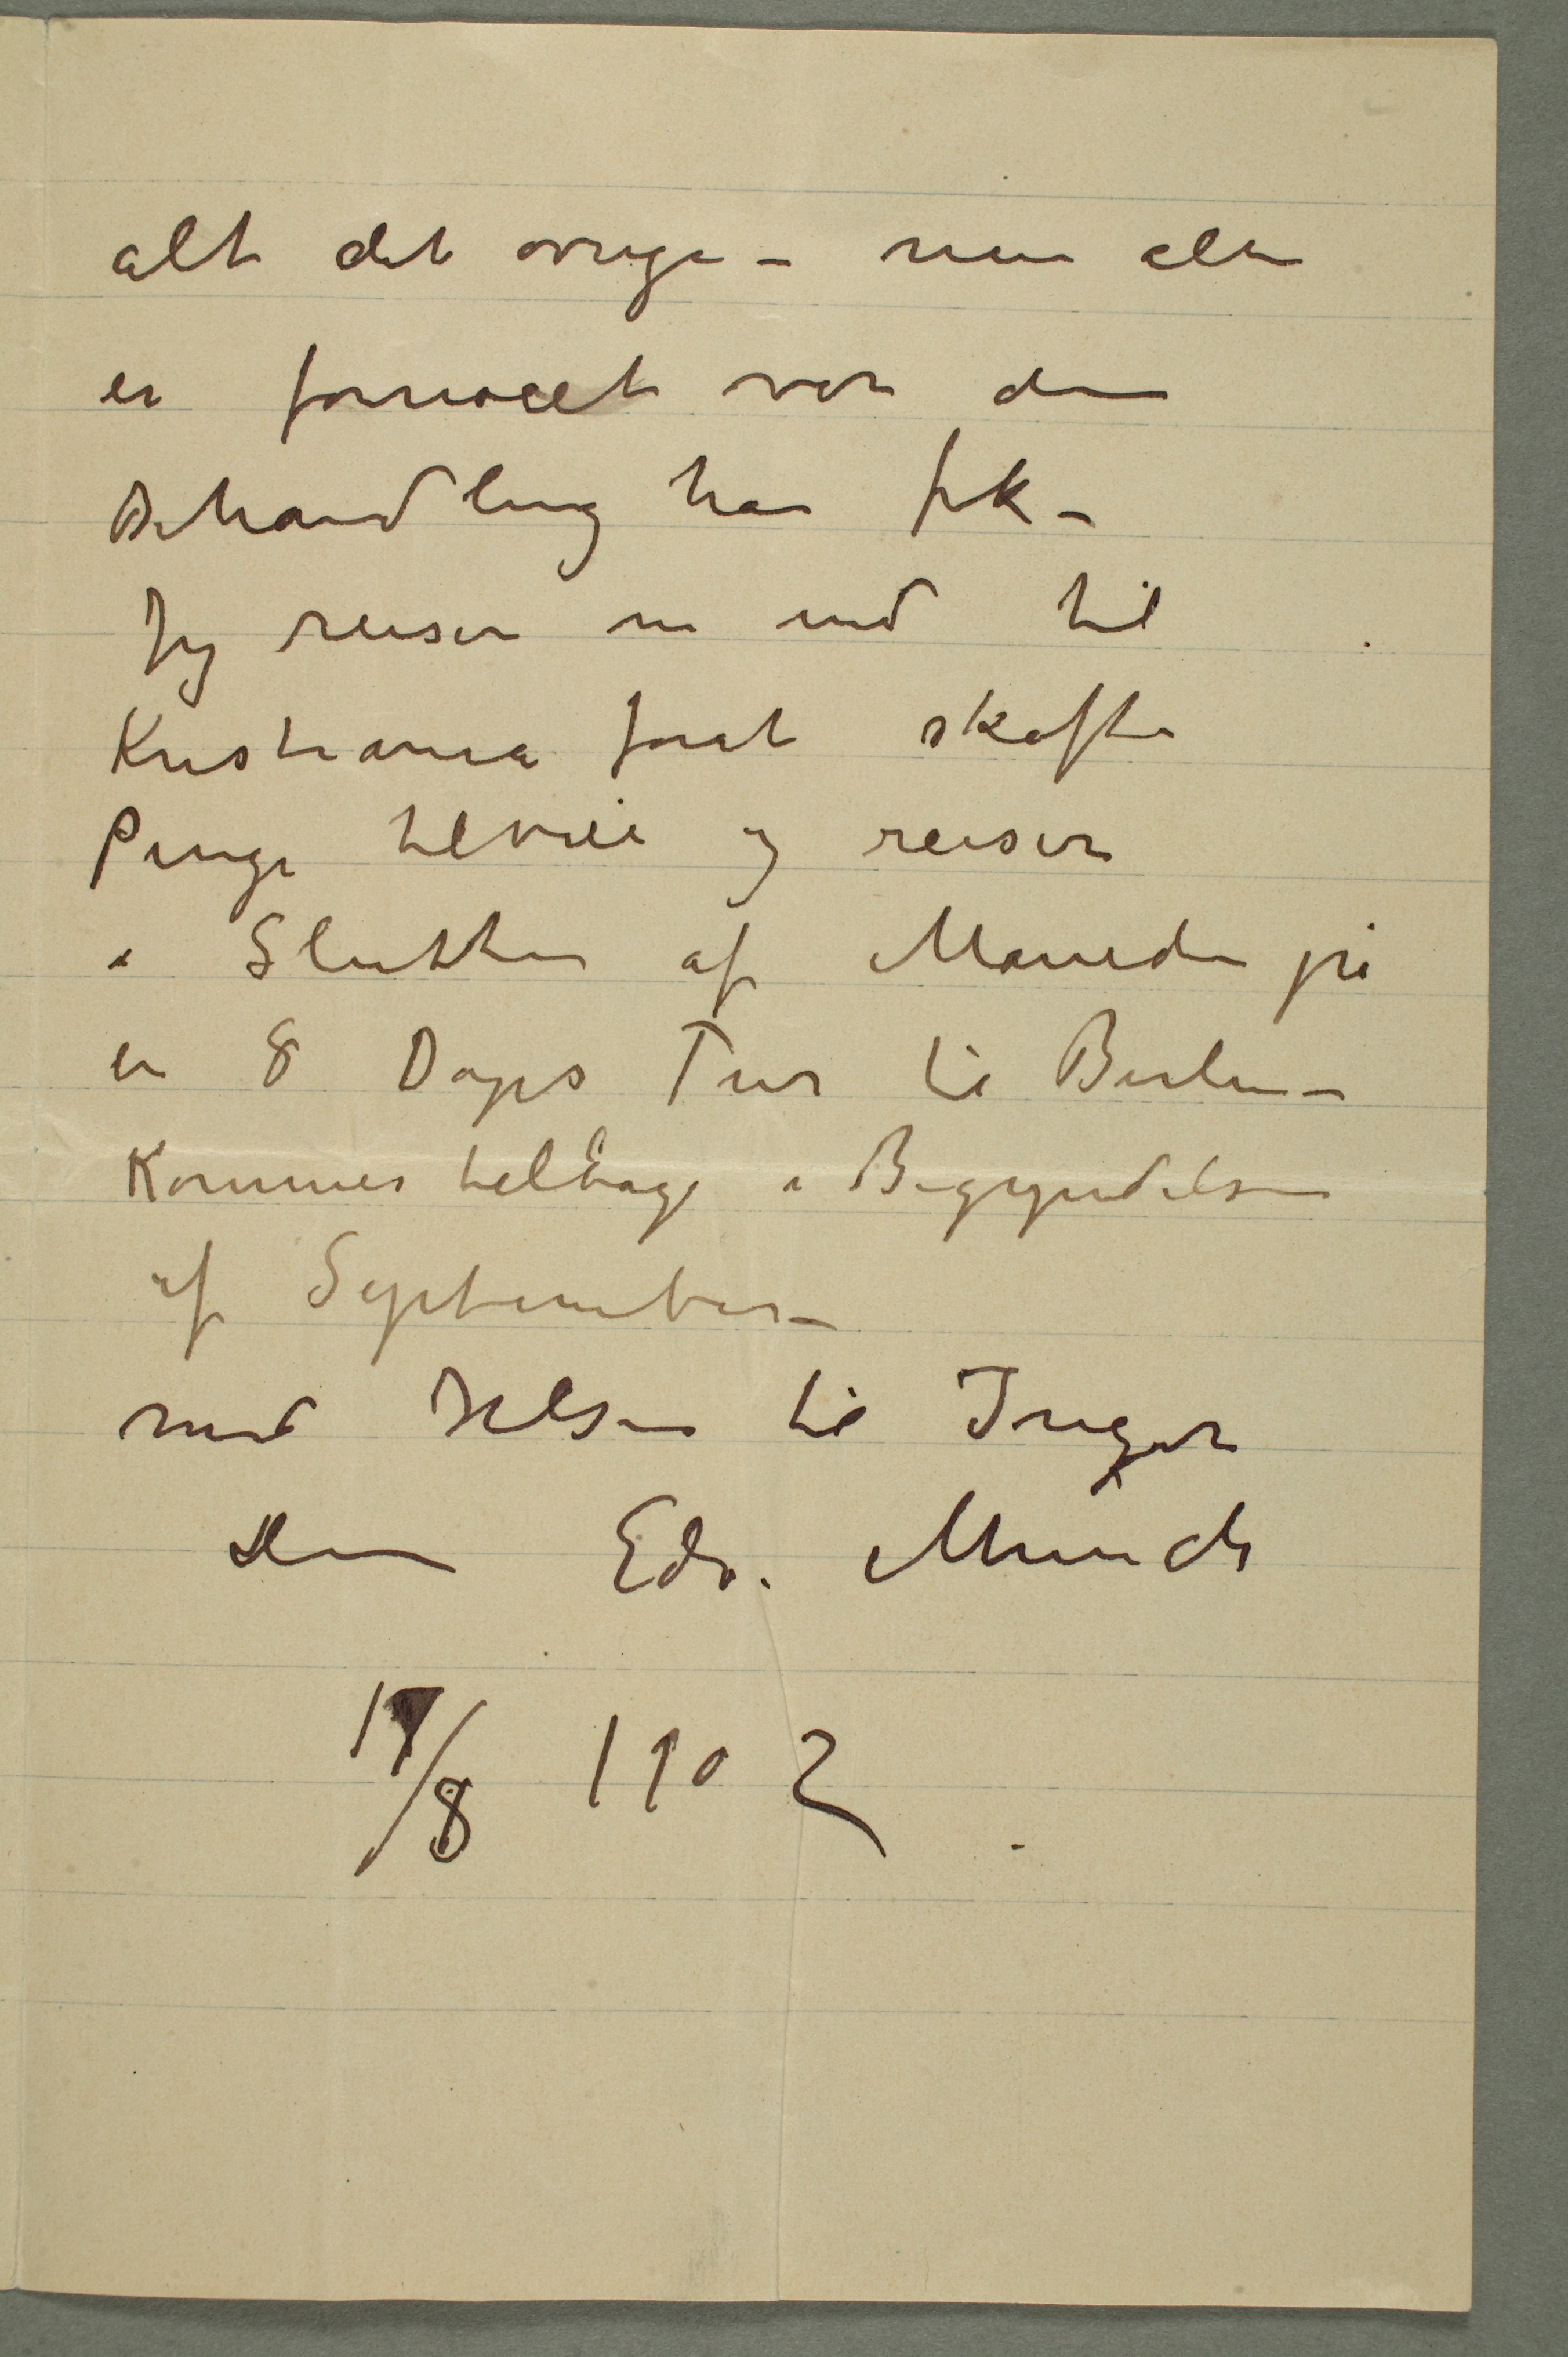 alt det øvrige – men alle
er fornøiet ver den
Behandling han fik –
Jeg reiser nu ind til
Kristiania forat skaffe
Penge tilveie og reiser
i Slutten af Maneden på
en 8 Dages Tur til Berlin –
Kommer tilbage i Begyndelsen
af September –
med Hilsen til Inger
Din Edv. Munch
17/8 1902